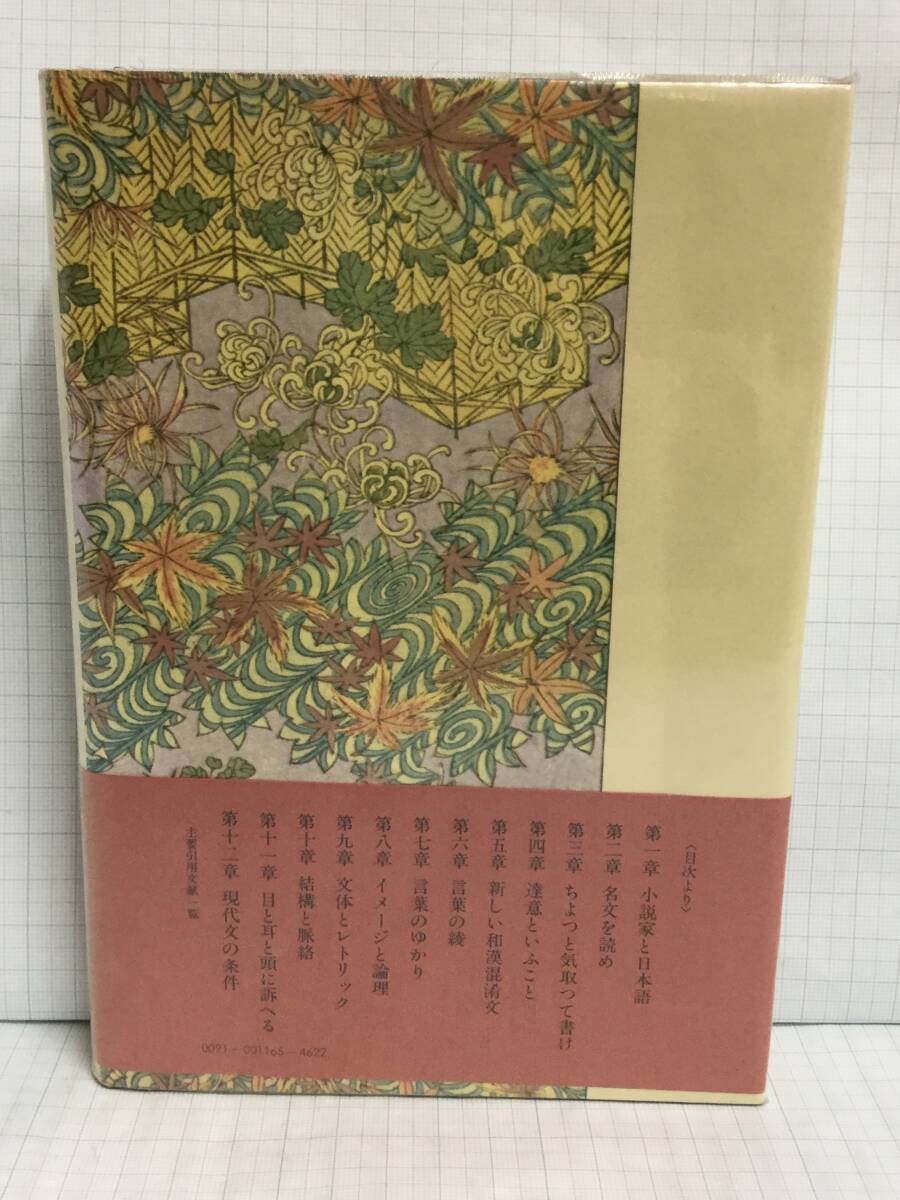 〈目次より〉
第一章 小説家と日本語
第二章 名文を読め
第三章 ちよつと気取つて書け
第四章 達意といふこと
第五章 新しい和漢混淆文
第六章 言葉の綾
第七章 言葉のゆかり
第八章 イメージと論理
第九章 文体とレトリック
第十章 結構と脈絡
第十一章 目と耳と頭に訴へる
第十二章 現代文の条件
主要引用文献一覧
0091－001165－4622